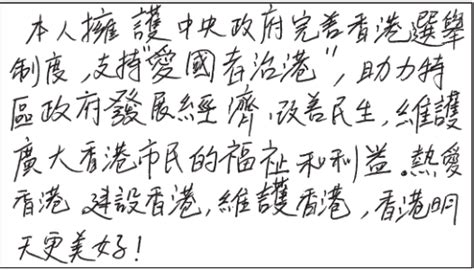 本人擁護中央政府完善香港選舉
制度，支持"愛國者治港"，助力特
區政府發展經濟、改善民生，維護
廣大香港市民的福祉和利益。熱愛
香港 建設香港，維護香港，香港明
天更美好！